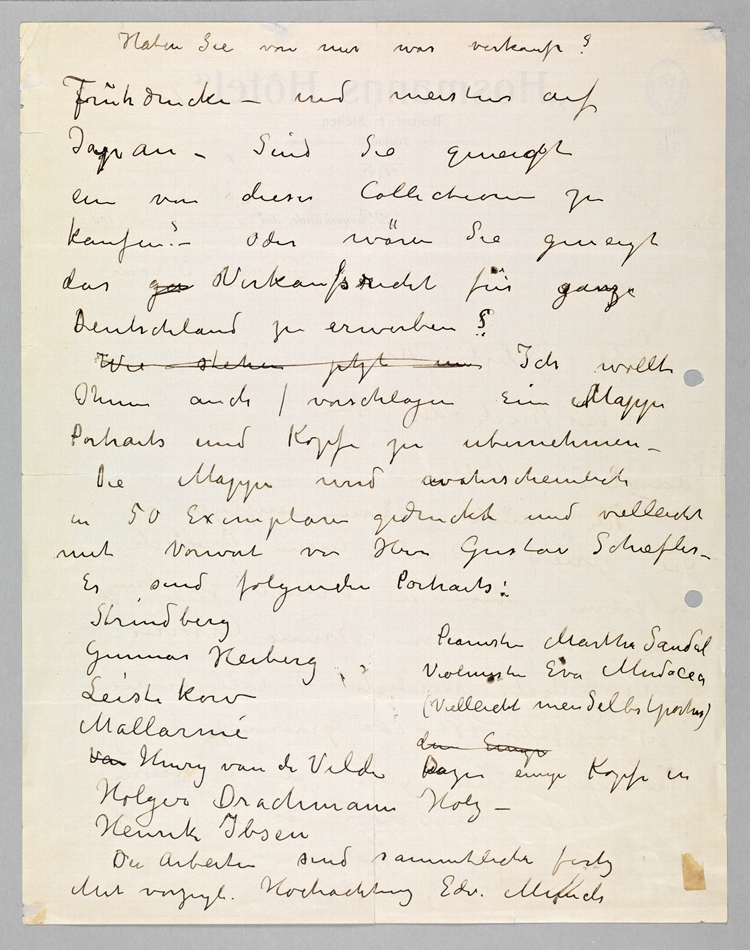 Haben Sie von mir was verkauft?
Frühdrucke – und meistens auf
Japan – Sind Sie geneigt
ein von dieser Collectionen zu
kaufen? – Oder wären Sie geneigt
das Verkaufsrecht für ganze
Deutschland zu erwerben?
Wie stehen jetzt Ich wollte
Ihnen auch vorschlagen Eine Mappe
Portraits und Köpfe zu übernehmen –
Die Mappe wird wahrscheinlich
in 50 Exemplaren gedruckt und vielleicht
mit Vorwort von Herr Gustav Schiefler –
Es sind folgende Portraits:
Strindberg
Gunnar Heiberg
Leistikow
Mallarmé
Van Henry van de Velde
Holger Drachmann
Henrik Ibsen
Pianistin Martha Sandal
Violinistin Eva Mudocci
(Vielleicht mein Selbstportrait)
den Einige
Dazu einige Köpfe in
Holz –
Die Arbeiten sind sammtliche fertig
Mit vorzügl. Hochachtung Edv. Munch
Hosmanns Hôtel